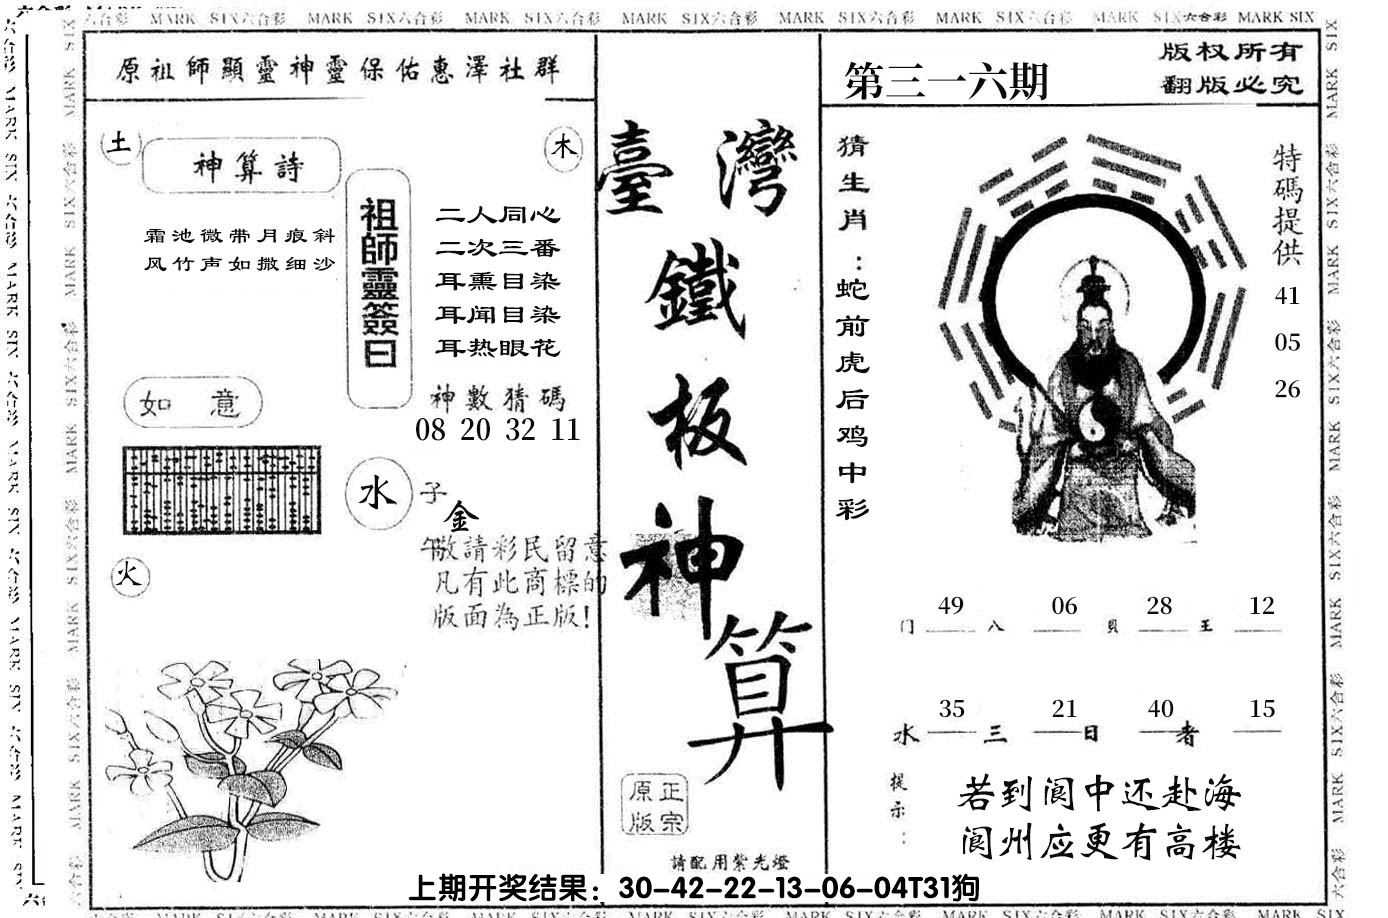 MARK SIX六合彩 MARK SIX六合彩 MARK SIX六合彩 MARK SIX六合彩 MARK SIX六合彩 MARK SIX六合彩 MARK SIX六合彩 MARK SIX
原祖師顯靈神靈保佑惠澤社群
土
神算詩
木
霜池微带月痕斜
风竹声如撒细沙
祖師靈簽曰
二人同心
二次三番
耳熏目染
耳闻目染
耳热眼花
神數猜碼
08 20 32 11
如意
水
子
金
午
敬請彩民留意
凡有此商標的
版面為正版!
火
臺灣
鐵
板
神
算
正宗
原版
請配用紫光燈
第三一六期
版权所有
翻版必究
猜生肖:蛇前虎后鸡中彩
特碼提供
41
05
26
49 06 28 12
门 八 貝 王
35 21 40 15
水 三 日 者
提示:
若到阆中还赴海
阆州应更有高楼
上期开奖结果：30-42-22-13-06-04T31狗